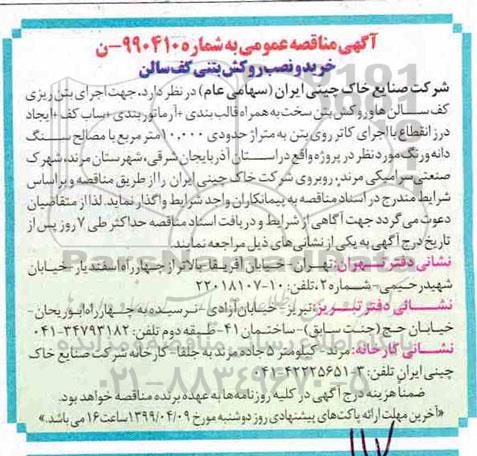 آگهی مناقصه عمومی به شماره ۹۹۰۴۱۰-ن
خرید و نصب روکش بتنی کف سالن
شرکت صنایع خاک چینی ایران (سهامی عام) در نظر دارد، جهت اجرای بتن ریزی
کف سالن ها و روکش بتن سخت به همراه قالب بندی + آرماتوربندی + ساب کف + ایجاد
درز انقطاع با اجرای کاتر روی بتن به متراژ حدودی ۱۰,۰۰۰ متر مربع با مصالح سنگ
دانه و رنگ مورد نظر در پروژه واقع در استان آذربایجان شرقی، شهرستان مرند، شهرک
صنعتی سرامیکی مرند، روبروی شرکت خاک چینی ایران را از طریق مناقصه و براساس
شرایط مندرج در اسناد مناقصه به پیمانکاران واجد شرایط واگذار نماید. لذا از متقاضیان
دعوت می گردد جهت آگاهی از شرایط و دریافت اسناد مناقصه حداکثر طی ۷ روز پس از
تاریخ درج آگهی به یکی از نشانی های ذیل مراجعه نمایند.
نشانی دفتر تهران: تهران - خیابان آفریقا - بالاتر از چهارراه اسفندیار - خیابان
شهید رحیمی - شماره ۲، تلفن: ۱۰-۲۲۰۱۸۱۰۷
نشانی دفتر تبریز: تبریز - خیابان آزادی - نرسیده به چهارراه ابوریحان -
خیابان حج (جنت سابق) - ساختمان ۴۱ - طبقه دوم تلفن: ۳۴۷۹۳۱۸۲-۰۴۱
نشانی کارخانه: مرند - کیلومتر ۵ جاده مرند به جلفا - کارخانه شرکت صنایع خاک
چینی ایران تلفن: ۳-۴۲۲۲۵۶۵۱-۰۴۱
ضمناً هزینه درج آگهی در کلیه روزنامه ها به عهده برنده مناقصه خواهد بود.
«آخرین مهلت ارائه پاکت های پیشنهادی روز دوشنبه مورخ ۱۳۹۹/۰۴/۰۹ ساعت ۱۶ می باشد.»
پایگاه اطلاع رسانی مناقصه و مزایده
۰۲۱-۸۸۳۴۹۶۷۰-۵